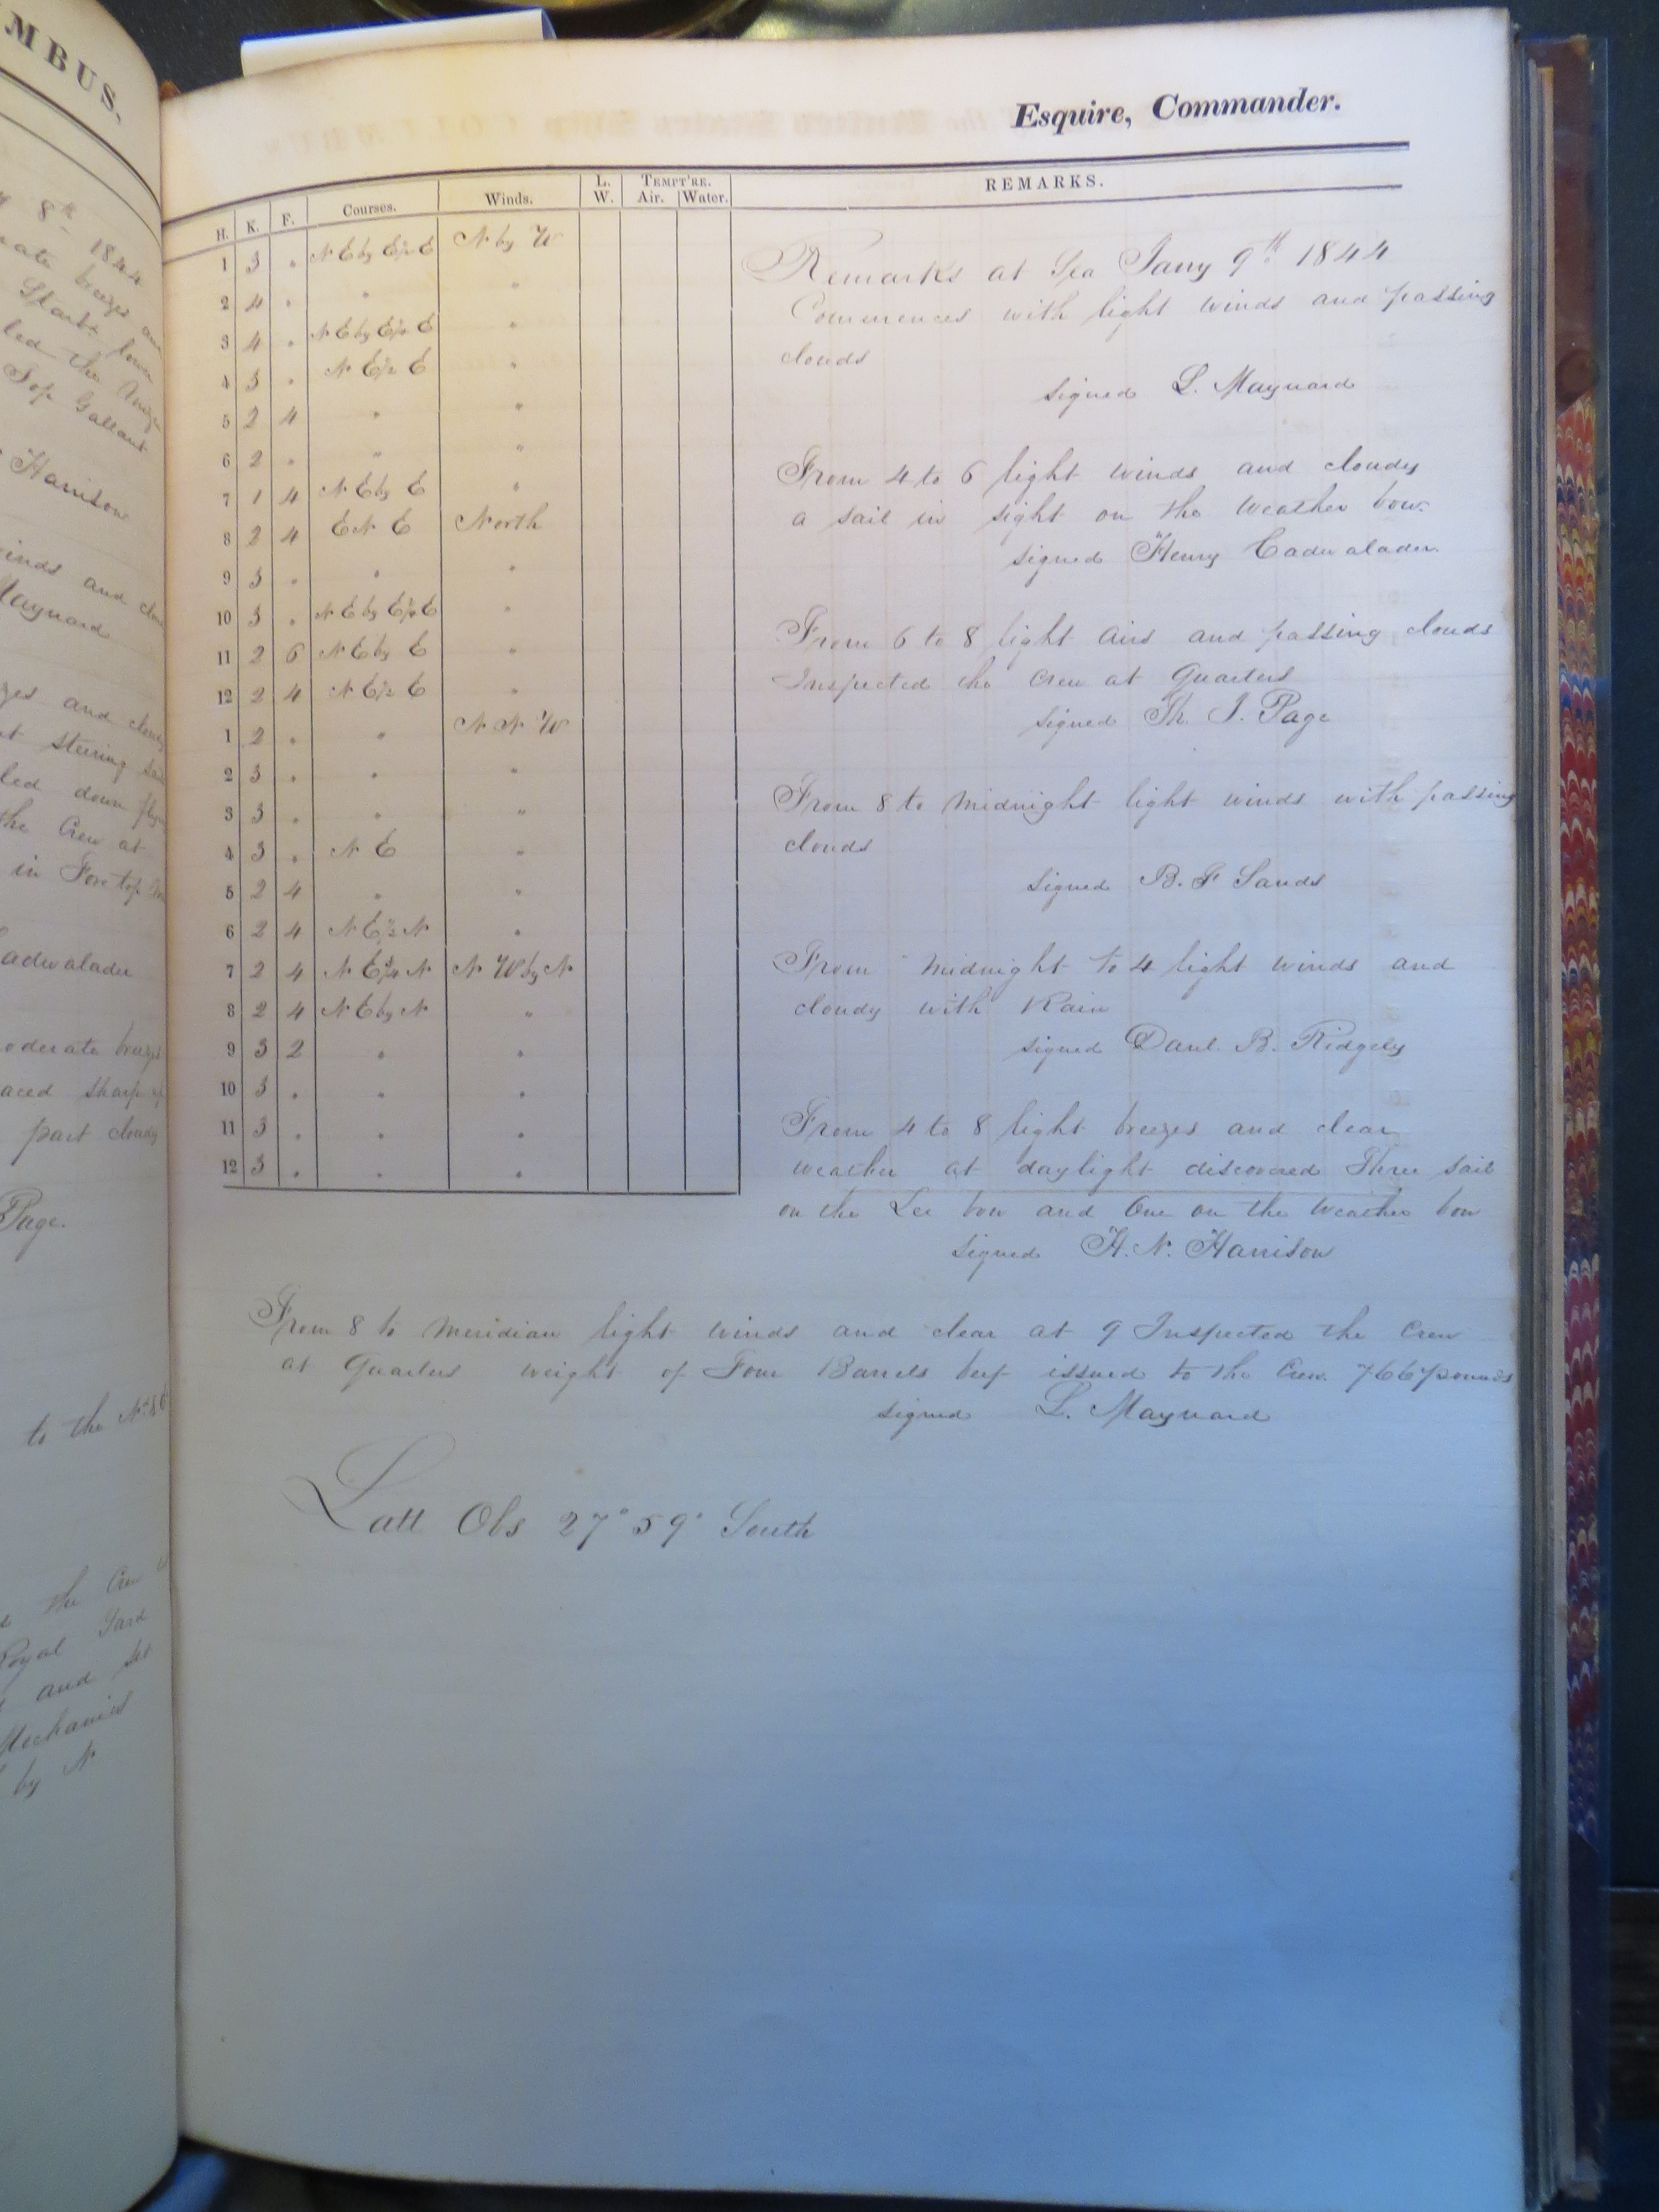 MBUS.
8th 1844
Harrison
Maynard
Cadwalader
Page.
to the
Esquire, Commander.
H. K. F. Courses. Winds. L. W. TEMPT'RE. Air. Water. REMARKS.
1 3 " N E by E ½ E N by W
2 4 " " "
3 4 " N E by E ½ E "
4 3 " N E ½ E "
5 2 4 " "
6 2 " " "
7 1 4 N E by E "
8 2 4 E N E North
9 3 " " "
10 3 " N E by E ½ E "
11 2 6 N E by E "
12 2 4 N E ½ E "
1 2 " " N N W
2 3 " " "
3 3 " " "
4 3 " N E "
5 2 4 " "
6 2 4 N E ½ N "
7 2 4 N E ¾ N N W by N
8 2 4 N E by N "
9 3 2 " "
10 3 " " "
11 3 " " "
12 3 " " "
Remarks at Sea Jany 9th 1844
Commences with light winds and passing
clouds
signed L. Maynard
From 4 to 6 light winds and cloudy
a sail in sight on the weather bow.
signed Henry Cadwalader.
From 6 to 8 light airs and passing clouds
Inspected the crew at Quarters
signed Th. J. Page
From 8 to midnight light winds with passing
clouds
signed B. F Sands
From midnight to 4 light winds and
cloudy with Rain
signed Danl. B. Ridgely
From 4 to 8 light breezes and clear
weather at daylight discovered Three sail
on the Lee bow and One on the weather bow
signed H. N. Harrison
From 8 to meridian light winds and clear at 9 Inspected the Crew
at Quarters weight of Four Barrels beef issued to the Crew. 766 pounds
signed L. Maynard
Latt Obs 27° 59' South